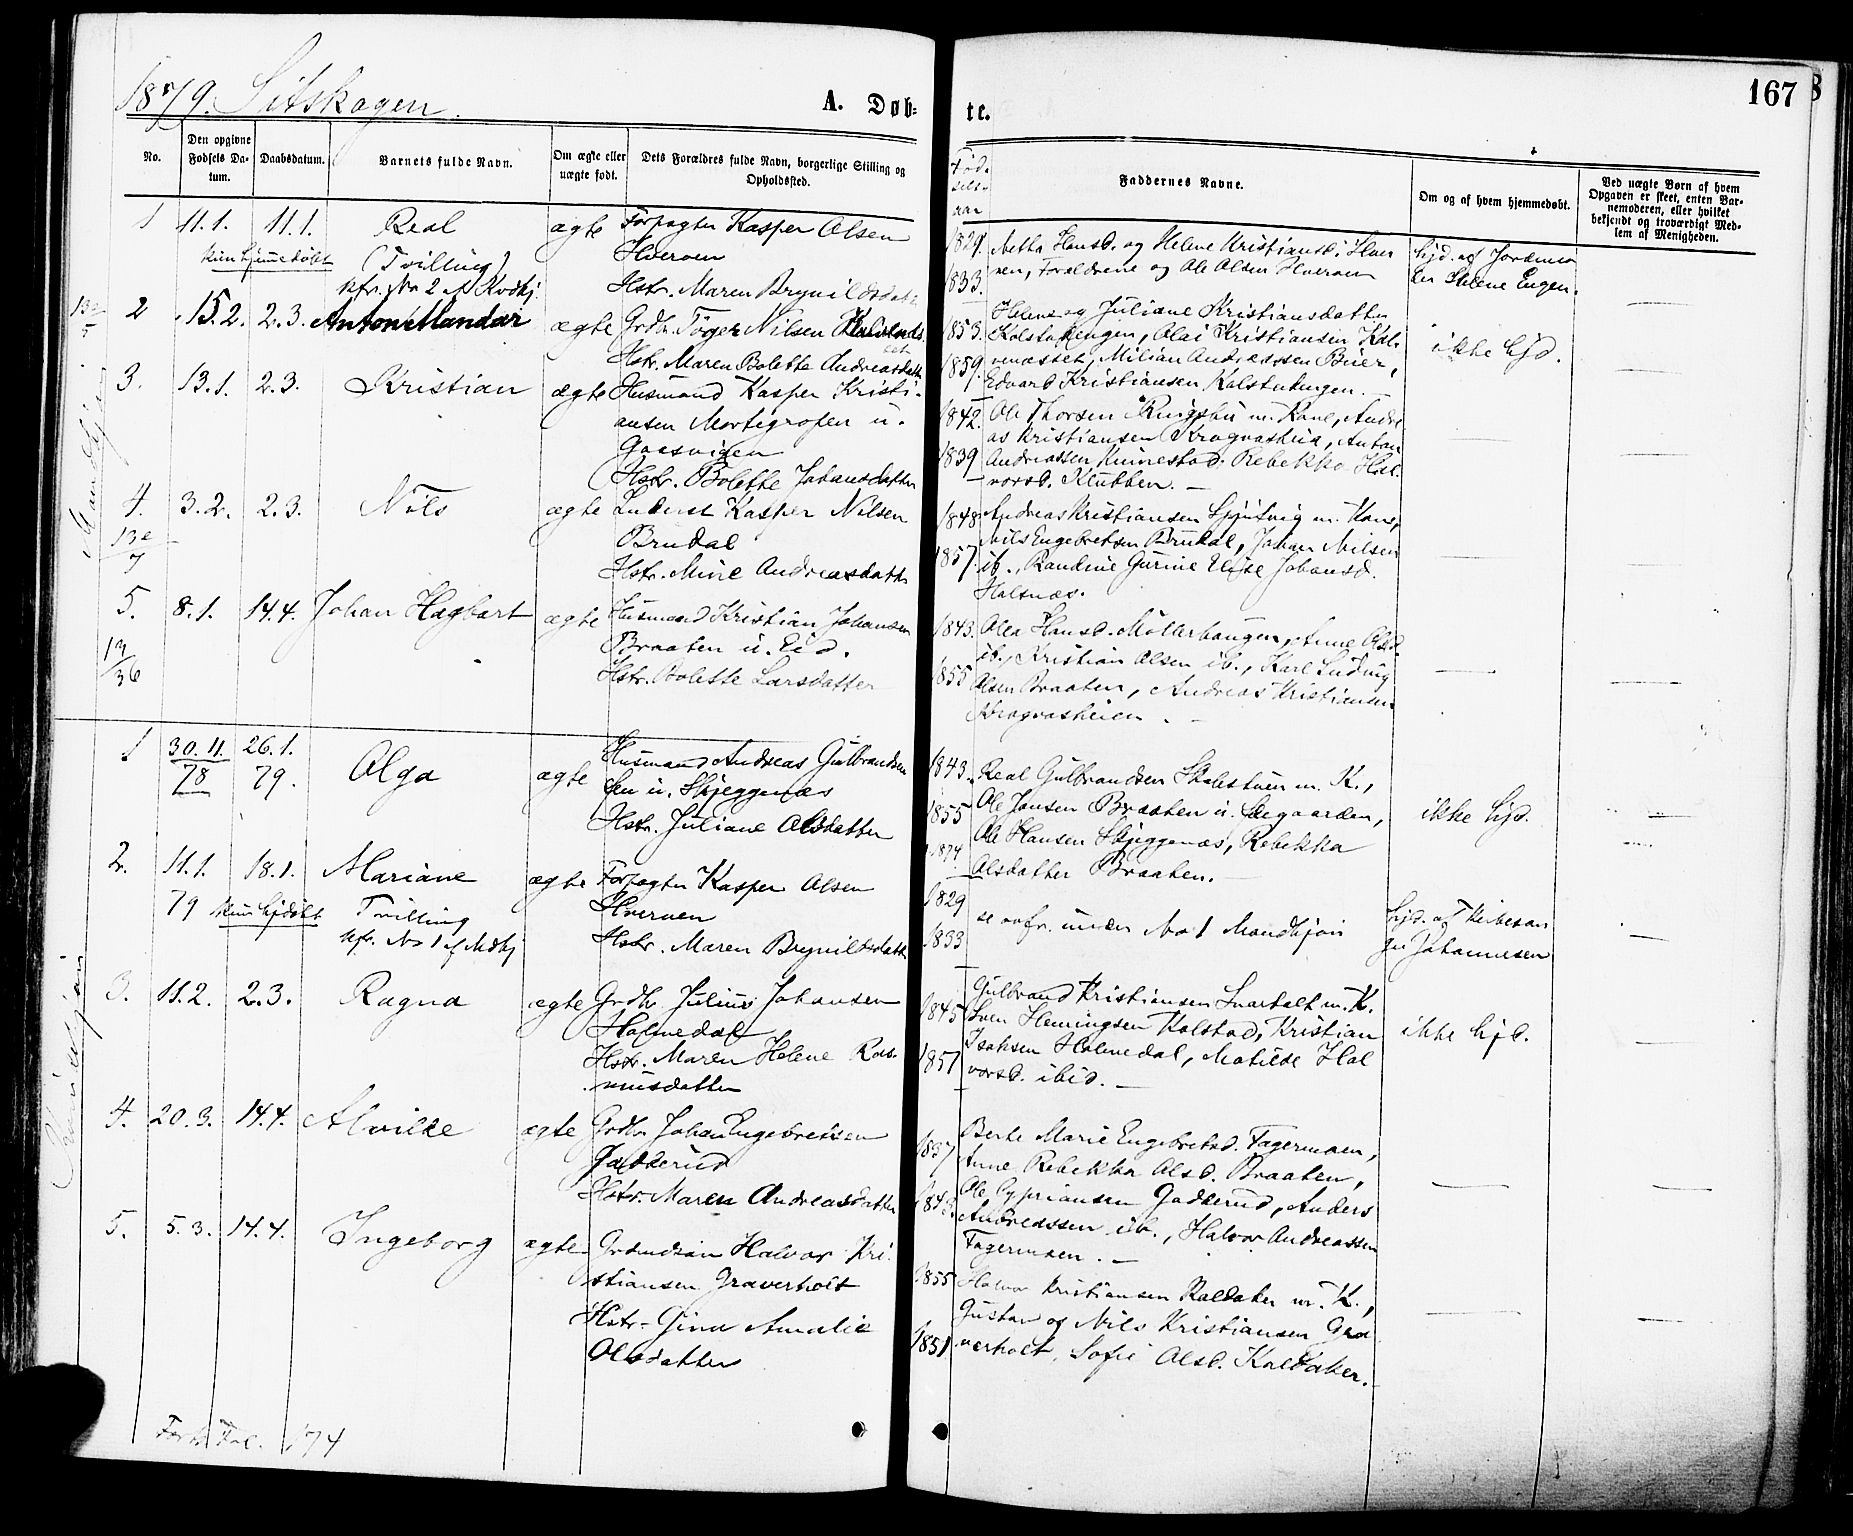 1879. Sitskogen.
A. Døb-
te.
167
No.
Den opgivne Fødsels Da-tum.
Daabsdatum.
Barnets fulde Navn.
Om ægte eller uægte født.
Dets Forældres fulde Navn, borgerlige Stilling og Opholdssted.
Fødselsaar
Faddernes Navne.
Om og af hvem hjemmedøbt.
Ved uægte Børn af hvem Opgaven er skeet, enten Bar-nemoderen, eller hvilket bekjendt og troværdigt Med-lem af Menigheden.
Mandkjøn
1 11.1. 11.1. Real ægte Forpagter Kasper Olsen
kun hjemmedøbt (Tvilling) Hverven
kfr. No 2 af Kvdkj. Hstr. Maren Brynildsdatt.
1829. 1833.
Hansd. og Helene Kristiansd. Hver
ven, Forældrene og Ole Olsen Hverven
hjd. af Jordemo
der Helene Engen.
2 15.2. 2.3. Anton Mandar ægte Grdbr. Tøger Nilsen
Hstr. Maren Bolette Andreasdatt
1853. 1859.
Helene og Juliane Kristiansdatter
Kolstadengen, Olai Kristiansen
Milian Andreassen Buer,
Edvard Kristiansen
ikke hjd.
3. 13.1. 2.3. Kristian ægte Husmand Kasper Kristi-
ansen Mortigrofen u.
Gaasvigen
Hstr. Bolette Johansdatter
1842. 1839
Ole Thorsen Ringsbu m. Kone, Andre
as Kristiansen Kragvasheia, Anton
Andreassen Kinnestad, Rebekka Hal
vorsd. Klubben.
4. 3.2. 2.3. Nils ægte Inderst Kasper Nilsen
Brudal
Hstr. Mine Andreasdatt
1848 1857.
Andreas Kristiansen m. Kone,
Nils Engebretsen Brudal, Johan Nilsen
ib., Randine Gurine Elise Johansd.
Holsnæs.
5. 8.1. 14.4. Johan Hagbart ægte Husmand Kristian Johansen
Braaten u. Eid.
Hstr. Bolette Larsdatter
1843. 1855
Olea Hansd. Møllerhaugen, Anne Olsd.
ib., Kristian Olsen ib., Karl Ludvig
Olsen Braaten, Andreas Kristiansen
Kragvasheien.
Kvindekjøn
1 30.11. 78 26.1. 79. Olga ægte Husmand Andreas Gulbrandsen
u. Skjeggenæs
Hstr. Juliane Olsdatter
1843. 1855 1874
Real Gulbrandsen m. K.,
Ole Jansen Braaten u. Degaarden,
Ole Hansen Skjeggenæs, Rebekka
Olsdatter Braaten.
ikke hjd.
2. 11.1. 79 18.1. Mariane ægte Forpagter Kasper Olsen
kun hjdøbt Tvilling Hverven
kfr. No 1 af Mdkj Hstr. Maren Brynildsdatt
1829 1833
se ovfr. under No 1 Mandkjøn
hjd. af Kirkesan
ger Johannesen
3. 11.2. 2.3. Ragna ægte Grdbr. Julius Johansen
Holmedal
Hstr. Maren Helene Ras-
musdatter
1845 1851
Gulbrand Kristiansen m. K.
Sven Hemingsen Kolstad, Kristian
Isaksen Holmedal, Matilde Hal
vorsd. ibid.
ikke hjd.
4. 20.3. 14.4. Alvilde ægte Grdbr. Johan Engebretsen
Gadderud
Hstr. Maren Andreasdatter
1837
Berte Marie Engebretsd. Fagermoen,
Anne Rebekka Olsd. Braaten,
Ole Cypriansen Gadderud, Anders
Andreassen ib., Halvor Andreassen
Fagermoen.
5. 5.3. 14.4. Ingeborg ægte Halvor Kri-
stiansen Graverholt
Hstr. Gina Amalie
Olsdatter
1855 1851
Halvor Kristiansen Kaldaker m. K.,
Gustav og Nils Kristiansen Gra
verholt, Sofie Olsd. Kaldaker.
Forts. Fol. 174